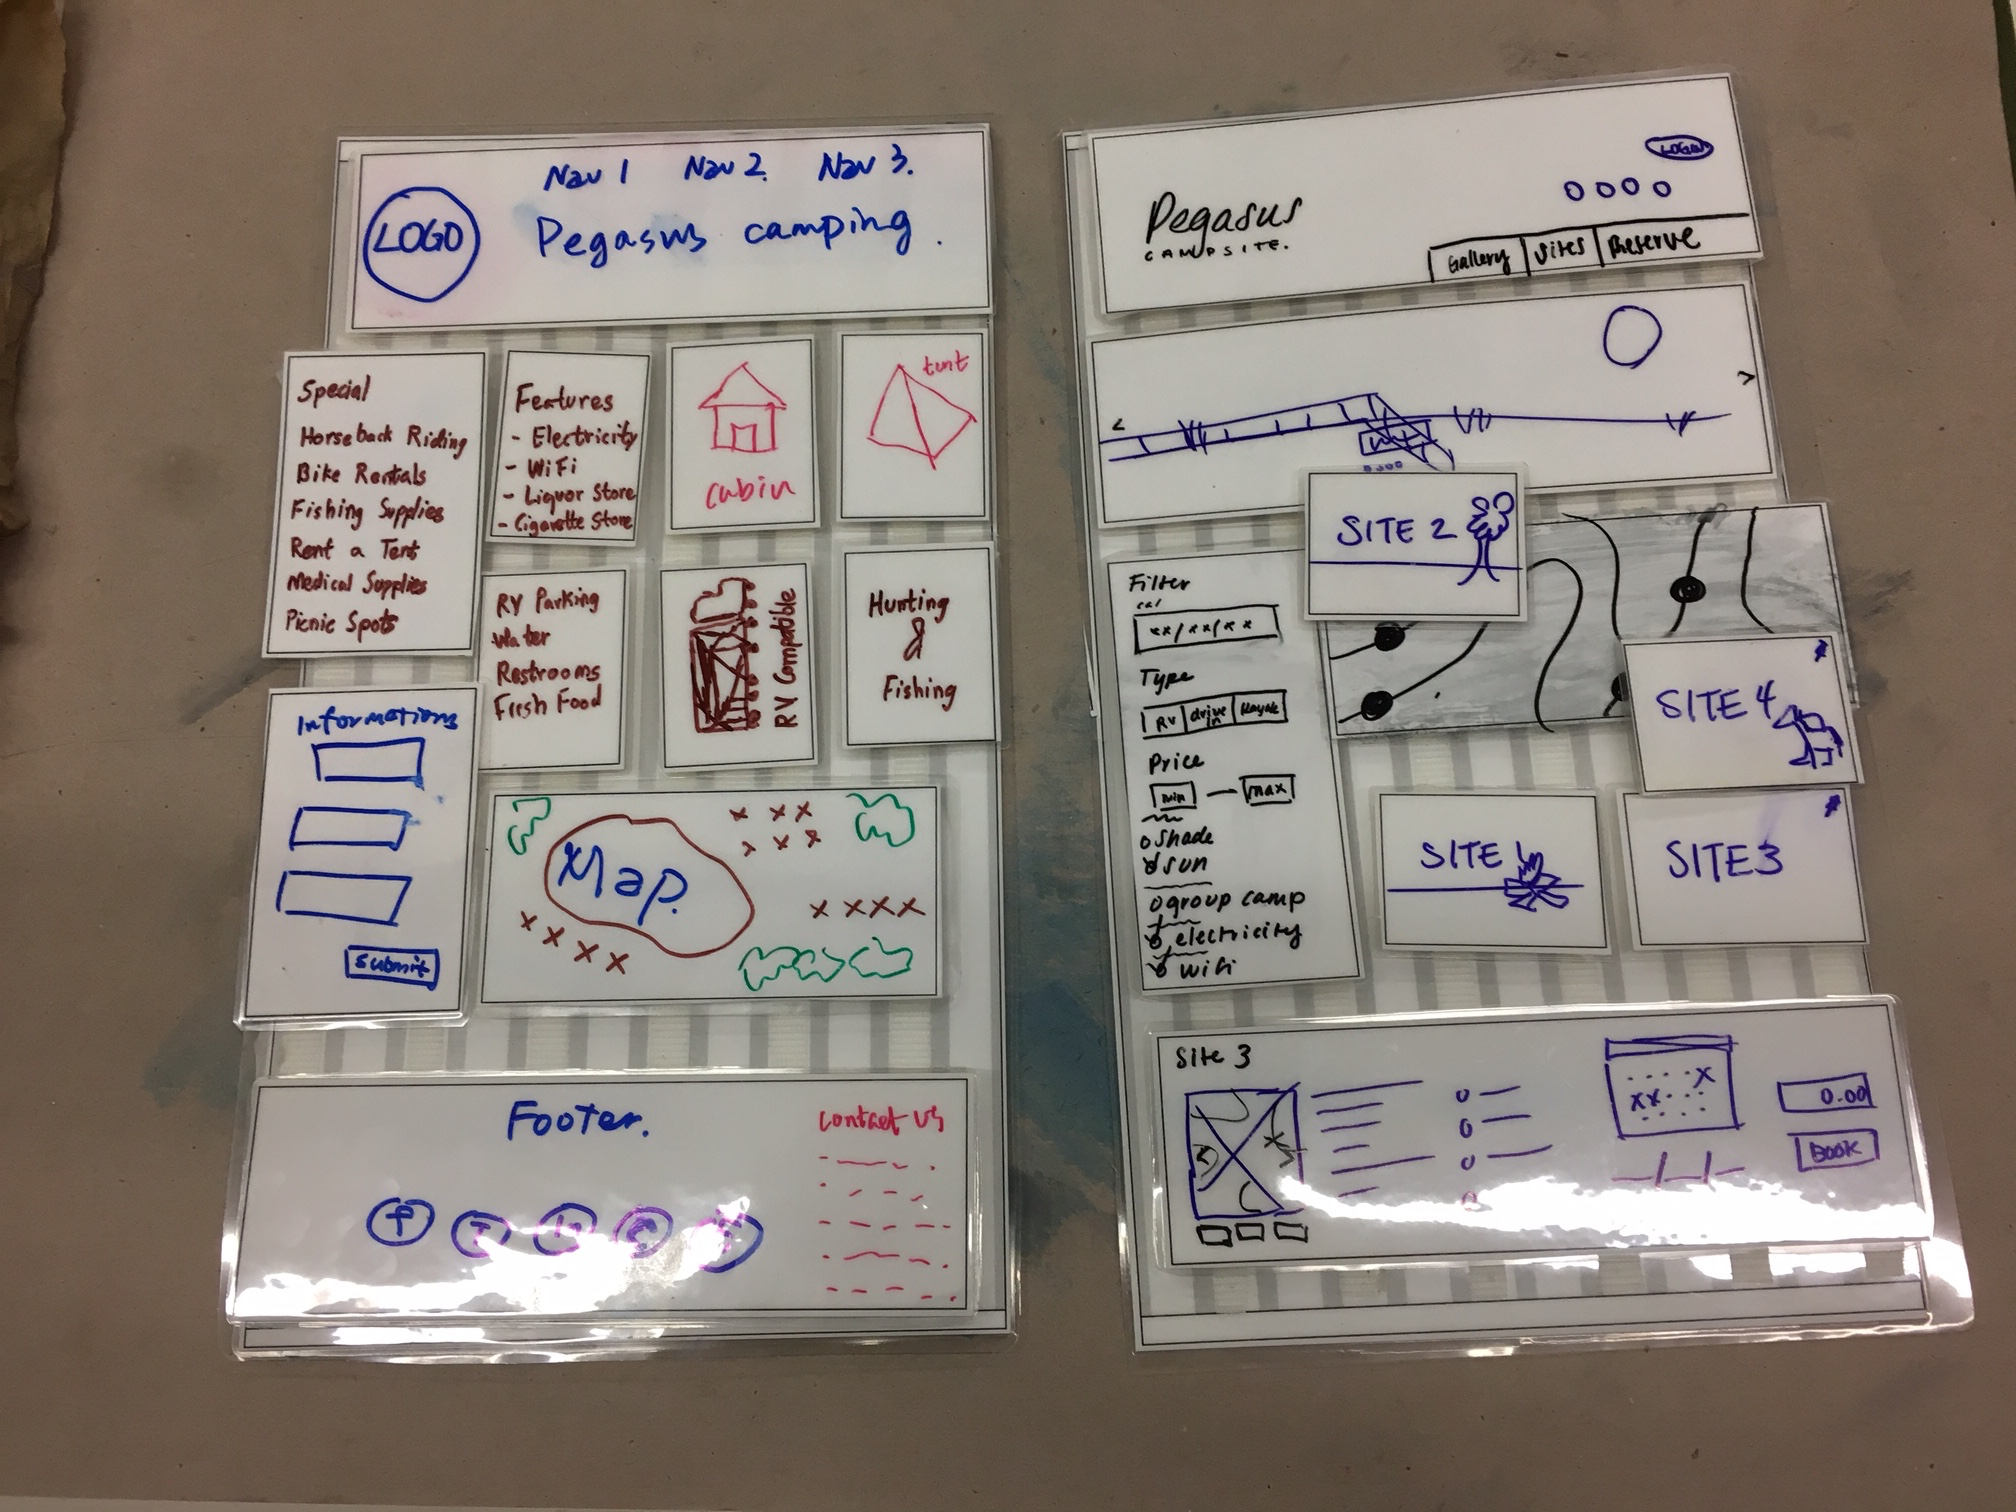 Nav 1 Nav 2. Nav 3.
LOGO
Pegasus camping.
Special
Horseback Riding
Bike Rentals
Fishing Supplies
Rent a Tent
Medical Supplies
Picnic Spots
Features
- Electricity
- WiFi
- Liquor Store
- Cigarette Store
cabin
tent
RV Parking
Water
Restrooms
Fresh Food
RV Compatible
Hunting
&
Fishing
Informations
Submit
Map.
Footer.
contact us
f
Pegasus
CAMPSITE.
LOGIN
Gallery Sites Reserve
<
>
SITE 2
Filter
cal
xx/xx/xx
Type
RV drive in Kayak
Price
min — max
shade
sun
group camp
electricity
wifi
SITE 4
SITE 1
SITE 3
Site 3
0.00
BOOK